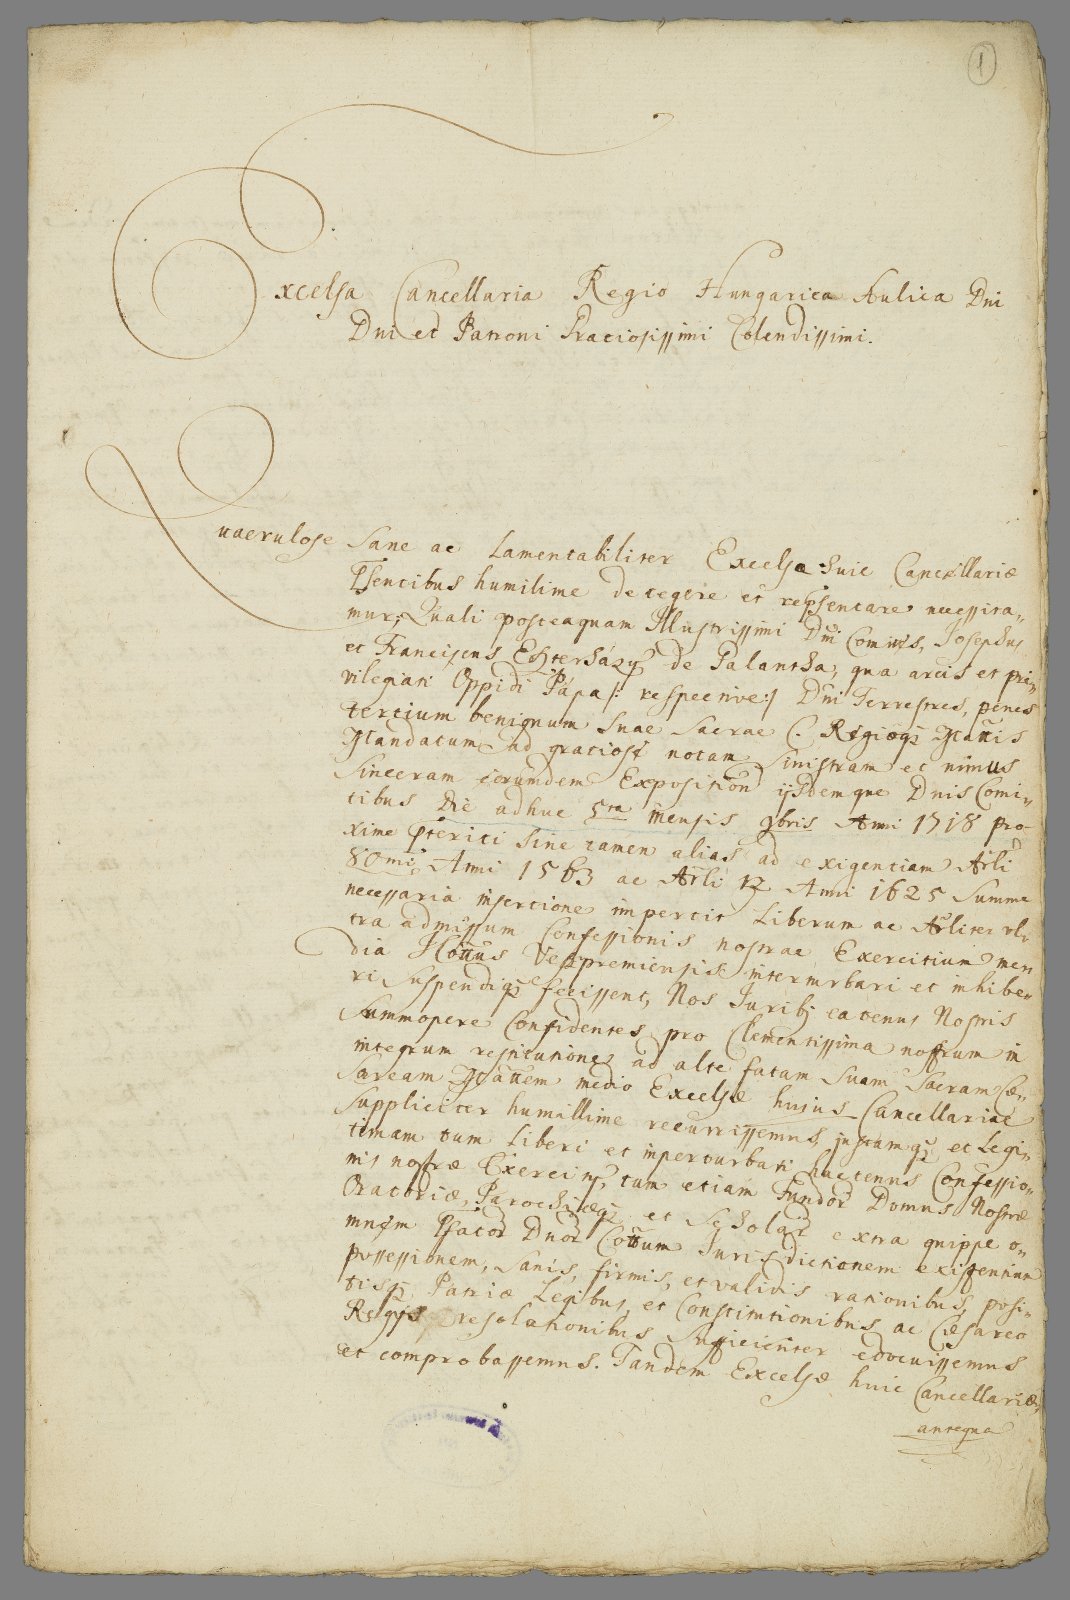 1
Excelsa Cancellaria Regio Hungarica Aulica Dni
Dni et Patroni Gratiosissimi Colendissimi.
Quaerulose Sane ac Lamentabiliter Excelsae huic Cancellariæ
Psentibus humilime detegere et repsentare necessita„
mur; Quali posteaquam Illustrissimi Dni Comites, Josephus
et Franciscus Eszterházÿ de Palantha, qua arcis et pri„
vilegiati Oppidi Pápa /: respective :/ Dni Terrestres, penes
tertium benignum Suae Sacrae C. Regiaeq; Mattis
Mandatum ad gratiose notam Sinistram et minus
Sinceram eorumdem Exposition ijsdemque Dnis Comi„
tibus Die adhuc 5ta mensis 9bris Anni 1718 pro„
xime Pteriti Sine tamen alias ad exigentiam Arli
80mi, Anni 1563 ac Arli 12 Anni 1625 Summe
necessaria insertione impertit Liberum ac Arliter
tra admissum Confessionis nostrae Exercitium me„
dia Cottus Veszpremiensis interturbari et inhibe„
ri Suspendiq; fecissent, Nos Juribq eatenus Nostris
Summopere Confidentes pro Clementissima nostrum in
integrum restitutione ad alte fatam Suam Sacram Cæ„
saream Mattem medio Excelsæ hujus Cancellariae
Suppliciter humillime recurrissemus, justamq; et Legi„
timam tum Liberi et inperturbati hactenus Confessio„
nis nostræ Exercitij, tum etiam Fundor Domus Nostræ
Oratoriæ, Parochiæq; et Scholar extra quippe o„
mnem Pfator Dnor Cottum Jurisdictionem existentium
possessionem, Sanis, firmis, et validis rationibus, posi„
tisq; Patriæ Legibus, et Constitutionibus ac Cæsareo
Regijs resolutionibus Sufficienter edocuissemus
et comprobassemus. Tandem Excelsæ huic Cancellariæ,
antequa